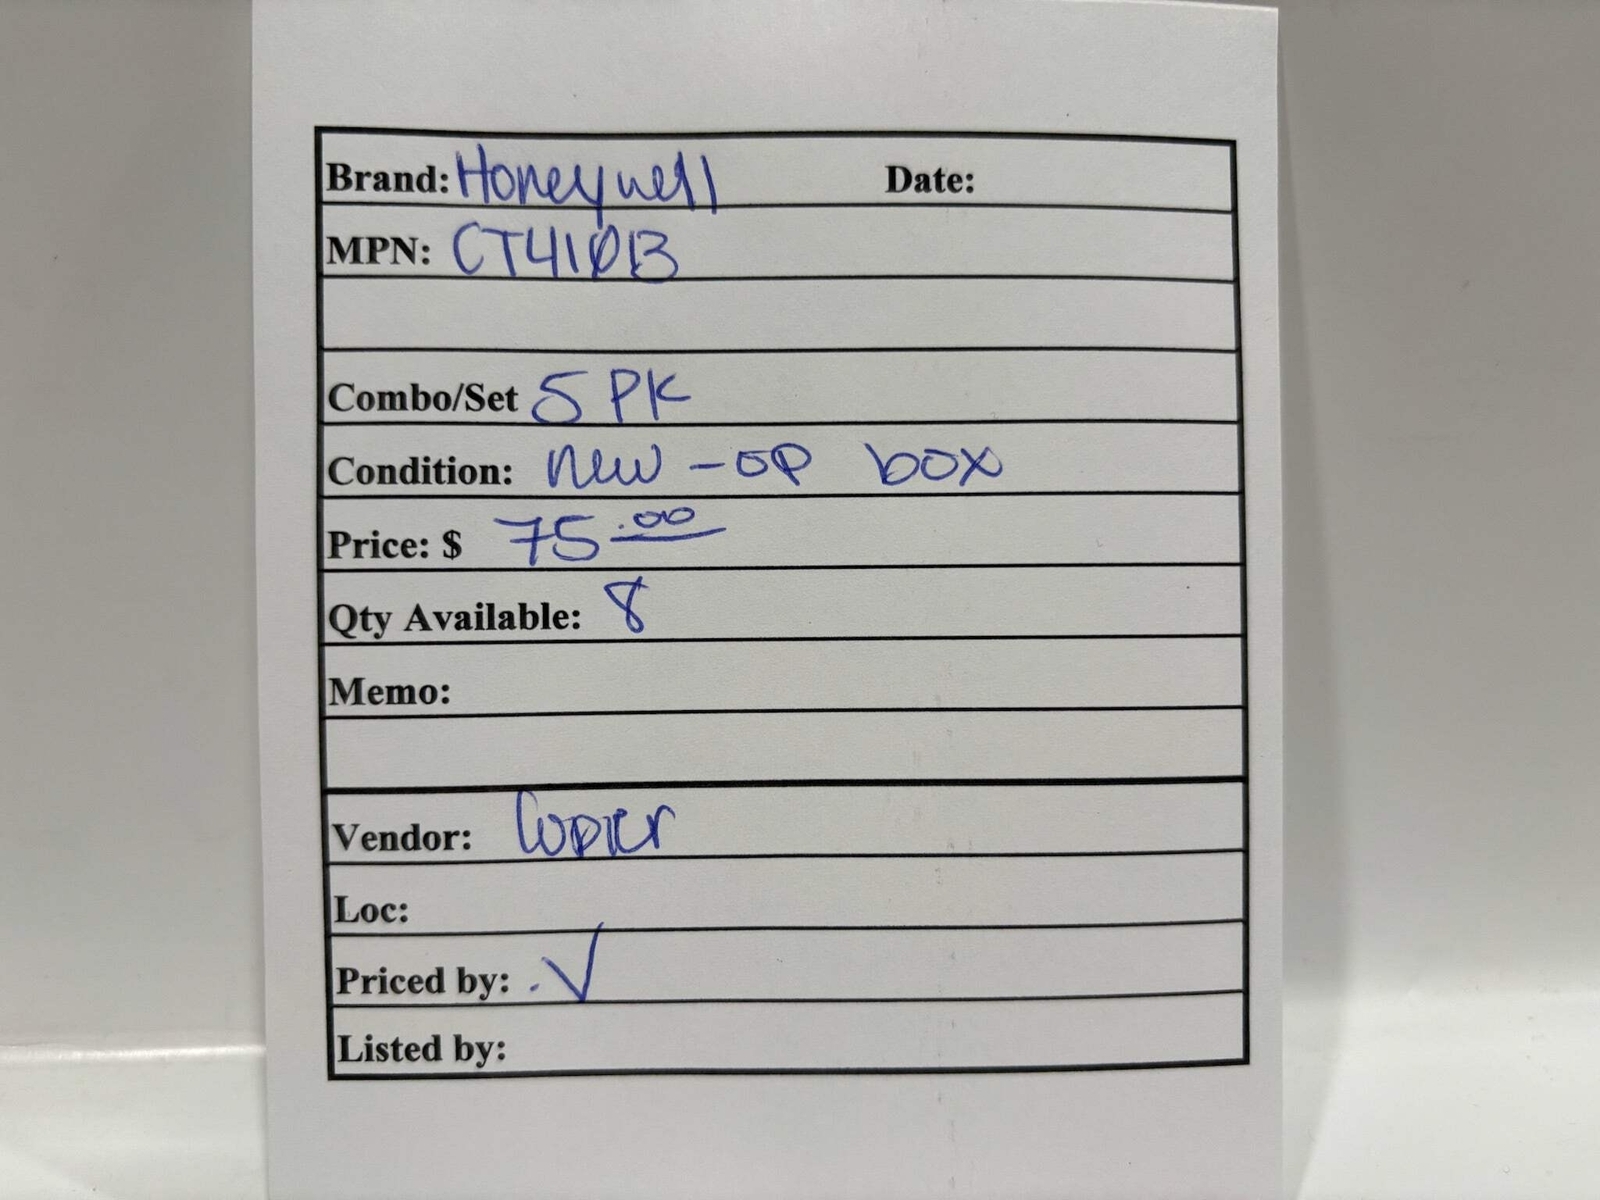 Brand: Honeywell Date:
MPN: CT410B
Combo/Set 5 PK
Condition: new - op box
Price: $ 75.00
Qty Available: 8
Memo:
Vendor: Copier
Loc:
Priced by: . V
Listed by: